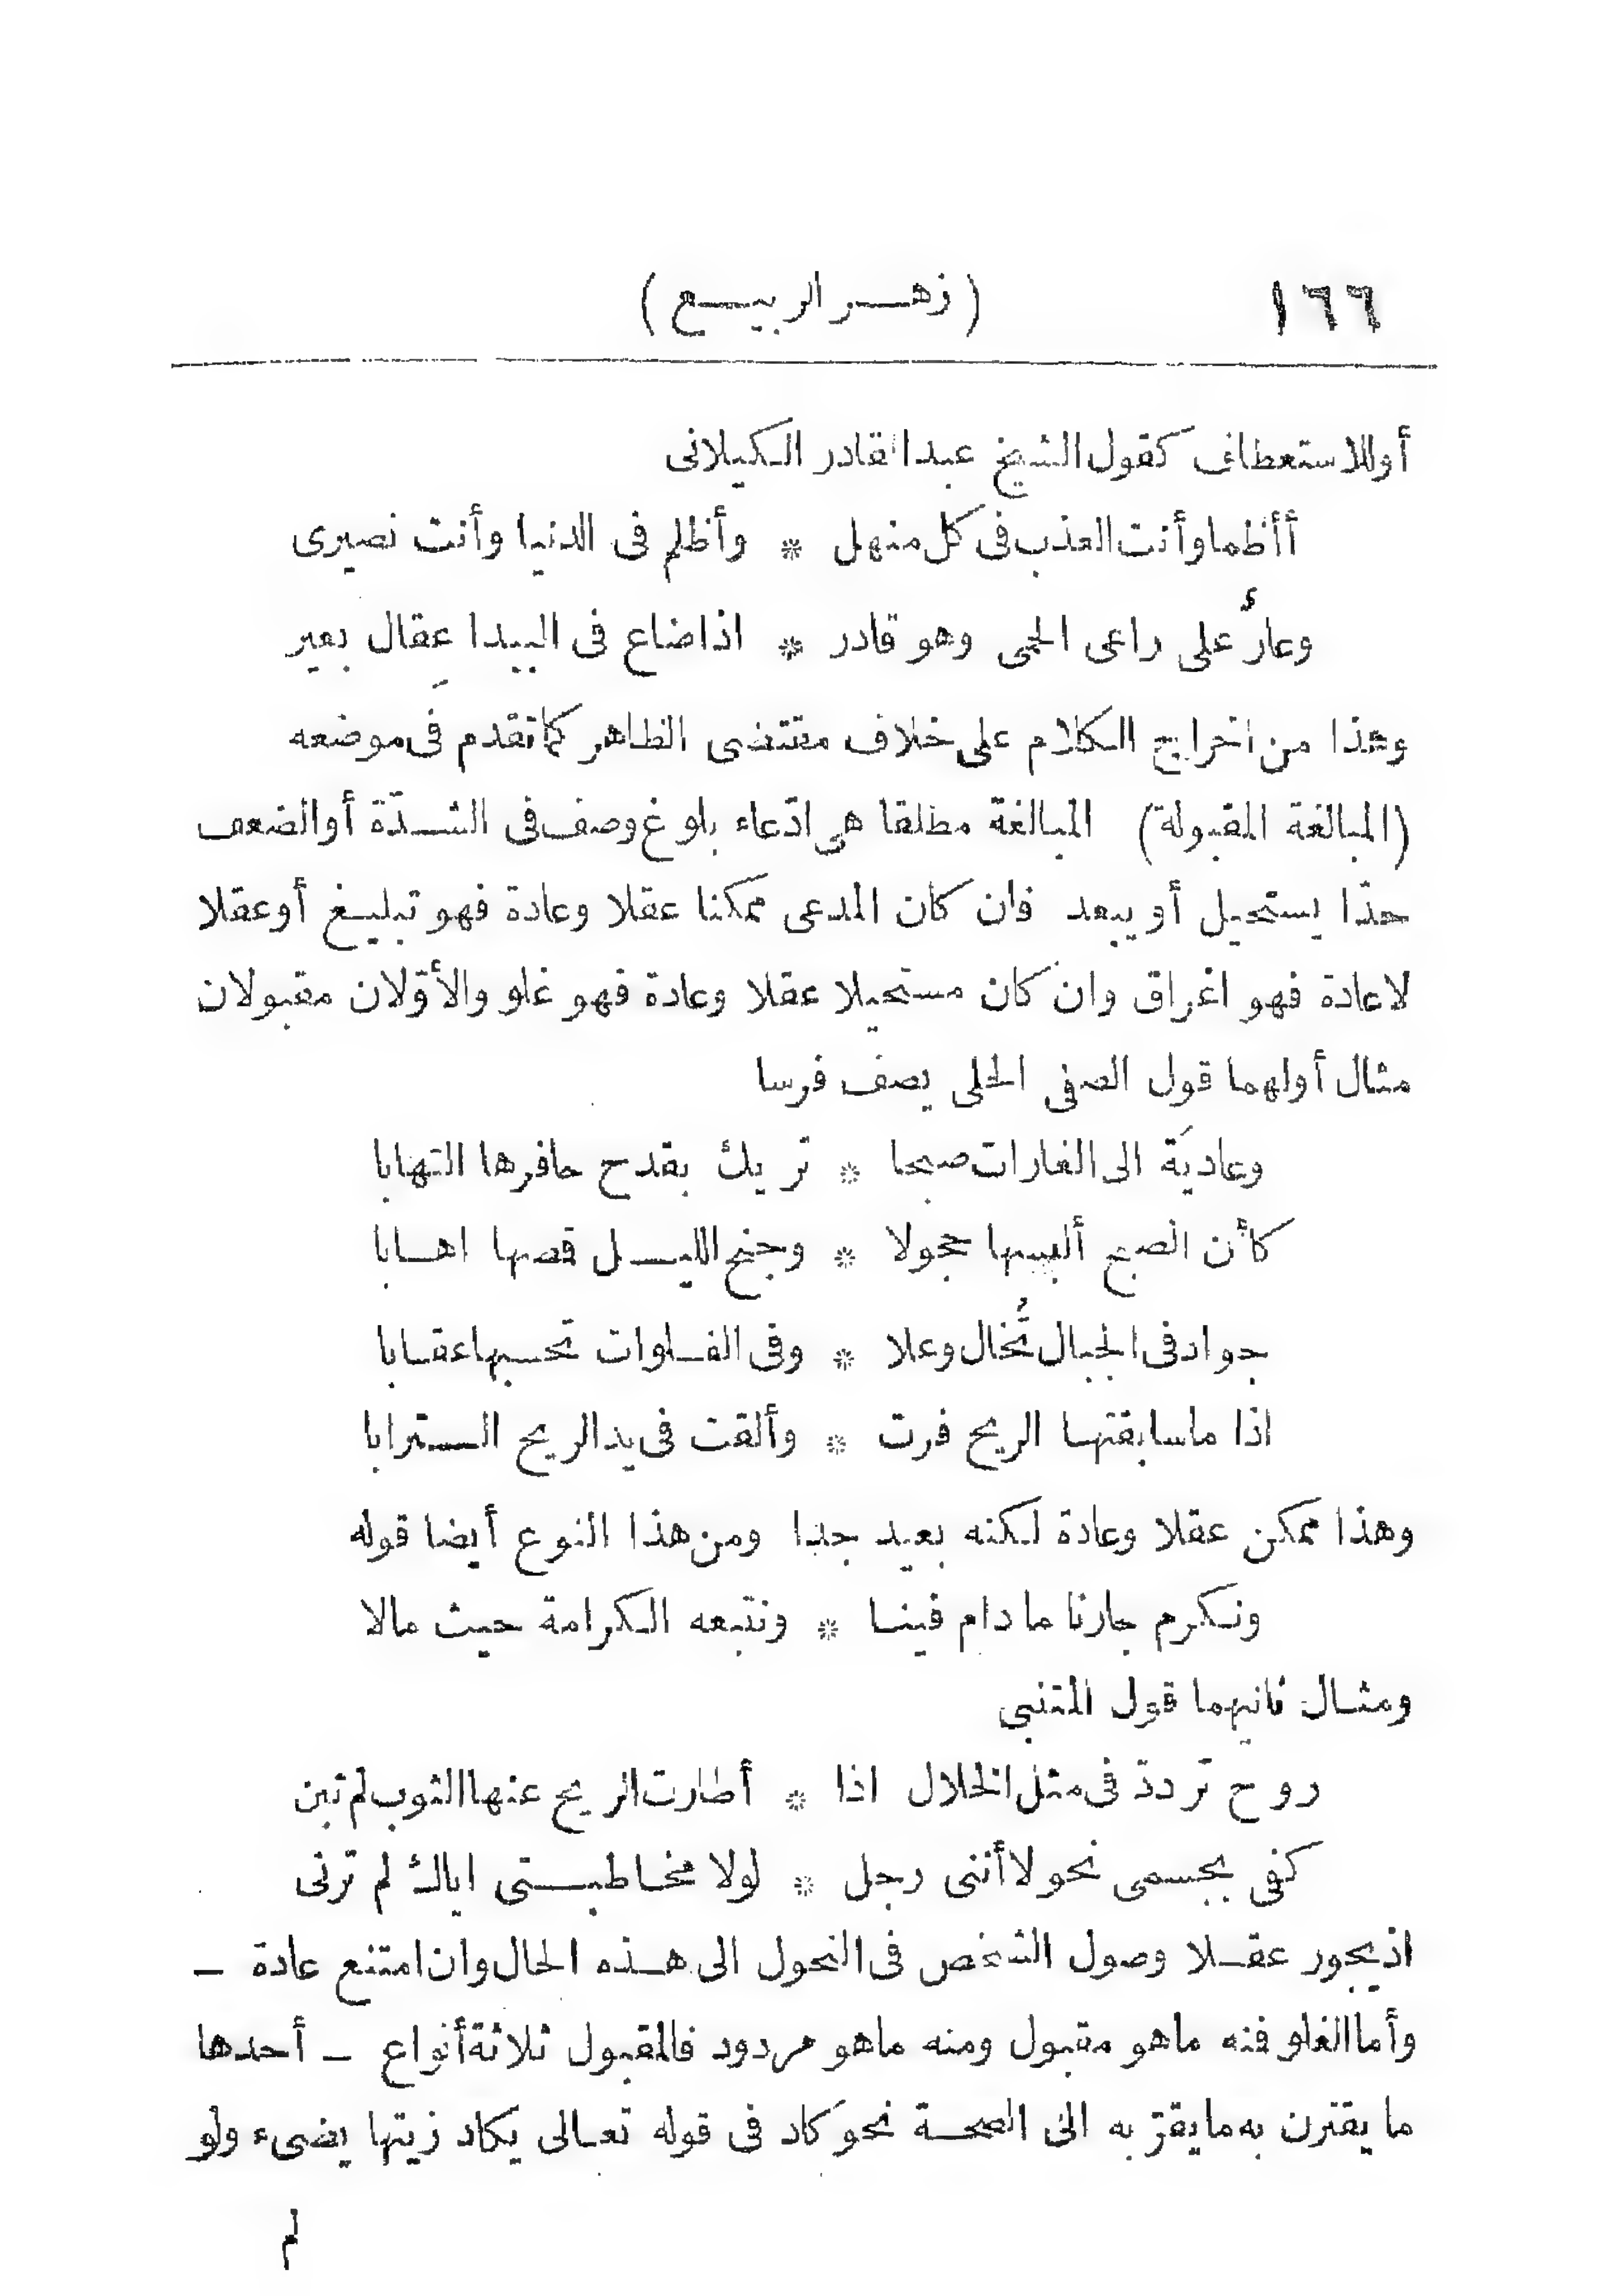 ١٦٦ (زهر الربيع)
أوللاستعطاف كقول الشيخ عبد القادر الكيلانى
أأظما وأنت العذب فى كل منهل * وأظلم فى الدنيا وأنت نصيرى
وعارٌ على راعى الحمى وهو قادر * اذا ضاع فى البيدا عِقال بعير
وهذا من اخراج الكلام على خلاف مقتضى الظاهر كما تقدم فى موضعه
(المبالغة المقبولة) المبالغة مطلقا هى ادّعاء بلوغ وصف فى الشدّة أو الضعف
حدّا يستحيل أو يبعد فان كان المدعى ممكنا عقلا وعادة فهو تبليغ أو عقلا
لا عادة فهو اغراق وان كان مستحيلا عقلا وعادة فهو غلو والأوّلان مقبولان
مثال أولهما قول الصفى الحلى يصف فرسا
وعاديَة الى الغارات صبحا * تريك بقدح حافرها التهابا
كأن الصبح ألبسها حجولا * وجنح الليل قمصها اهابا
جواد فى الجبال تُخال وعلا * وفى الفلوات تحسبها عقابا
اذا ما سابقتها الريح فرت * وألقت فى يد الريح الترابا
وهذا ممكن عقلا وعادة لكنه بعيد جدا ومن هذا النوع أيضا قوله
ونكرم جارنا ما دام فينا * ونتبعه الكرامة حيث مالا
ومثال ثانيهما قول المتنبى
روح تردد فى مثل الخلال اذا * أطارت الريح عنها الثوب لم تبن
كفى بجسمى نحولا أننى رجل * لولا مخاطبتى اياك لم ترنى
اذ يجوز عقلا وصول الشخص فى النحول الى هذه الحال وان امتنع عادة –
وأما الغلو فنه ما هو مقبول ومنه ما هو مردود فالمقبول ثلاثة أنواع – أحدها
ما يقترن به ما يقرّبه الى الصحة نحو كاد فى قوله تعالى يكاد زيتها يضىء ولو
لم